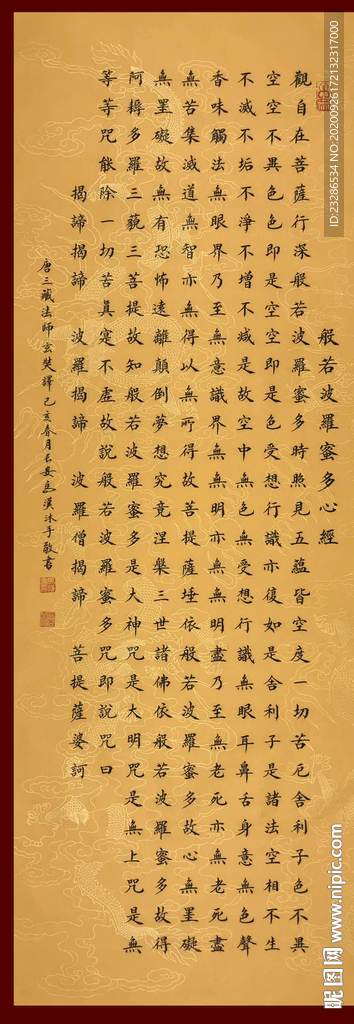 般若波羅蜜多心經
觀自在菩薩行深般若波羅蜜多時照見五蘊皆空度一切苦厄舍利子色不異
空空不異色色即是空空即是色受想行識亦復如是舍利子是諸法空相不生
不滅不垢不淨不增不減是故空中無色無受想行識無眼耳鼻舌身意無色聲
香味觸法無眼界乃至無意識界無無明亦無無明盡乃至無老死亦無老死盡
無苦集滅道無智亦無得以無所得故菩提薩埵依般若波羅蜜多故心無罣礙
無罣礙故無有恐怖遠離顛倒夢想究竟涅槃三世諸佛依般若波羅蜜多故得
阿耨多羅三藐三菩提故知般若波羅蜜多是大神咒是大明咒是無上咒是無
等等咒能除一切苦真寔不虛故說般若波羅蜜多咒即說咒曰
揭諦揭諦 波羅揭諦 波羅僧揭諦 菩提薩婆訶
唐三藏法師玄奘譯 己亥春月 漢沐手敬書
ID:23286534 NO:20200926172132317000
昵图网 www.nipic.com